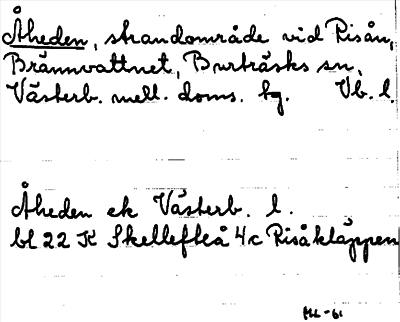 Åheden, strandområde vid Risån,
Brännvattnet, Burträsks sn,
Västerb. mell. doms. tg. Vb. l.
Åheden ek Västerb. l.
bl 22 K Skellefteå 4c Risåkläppen